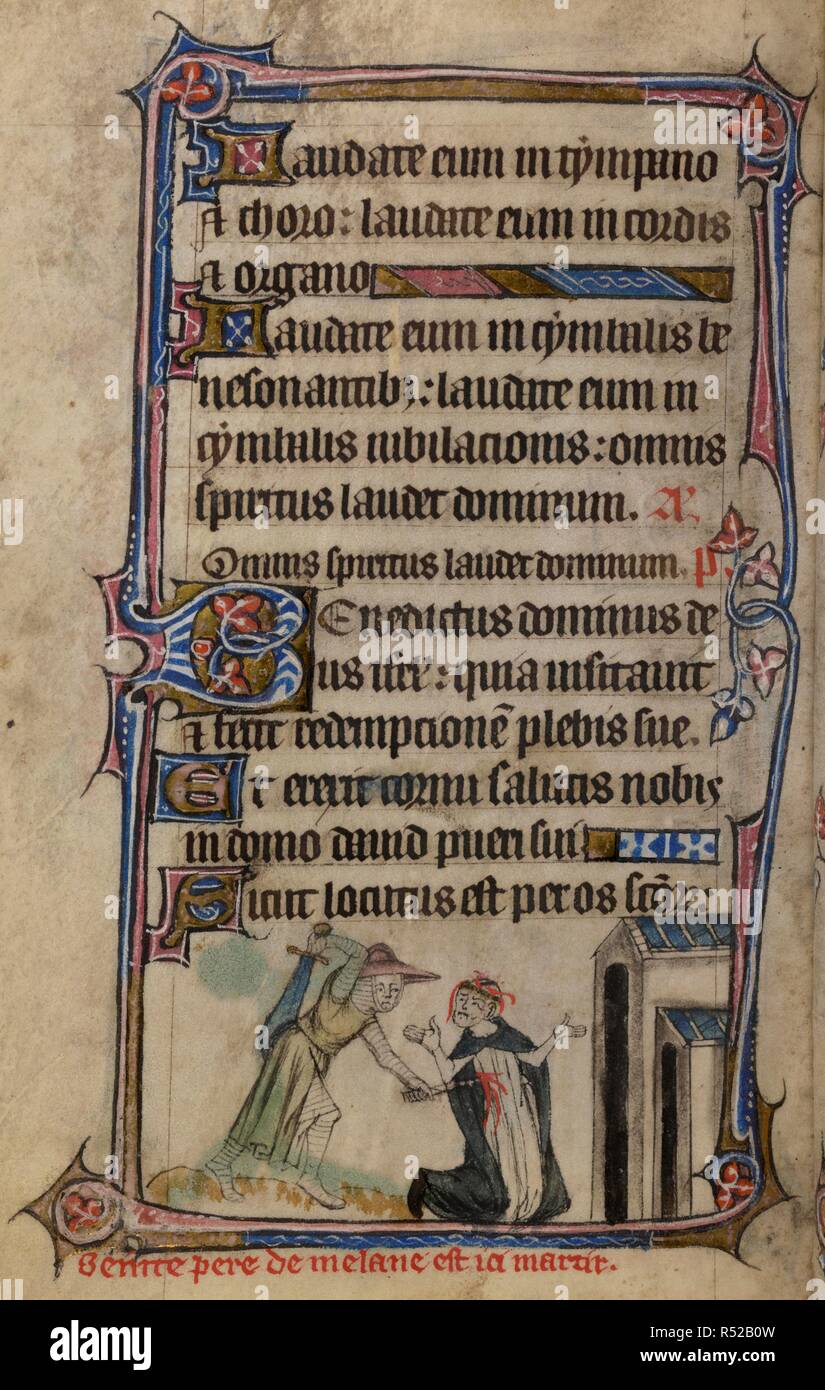 Laudate eum in tympano
& choro: laudate eum in cordis
& organo
Laudate eum in cymbalis be
nesonantibꝫ: laudate eum in
cymbalis iubilacionis: omnis
spiritus laudet dominum. A͂.
Omnis spiritus laudet dominum. p̄.
Benedictus dominus de
us isrł: quia uisitauit
& fecit redempcionē plebis sue.
Et erexit cornu salutis nobis
in domo dauid pueri sui
Sicut locutus est per os sc̄o
Seinte pere de melane est ici martir.
alamy
Image ID: R52B0W
www.alamy.com